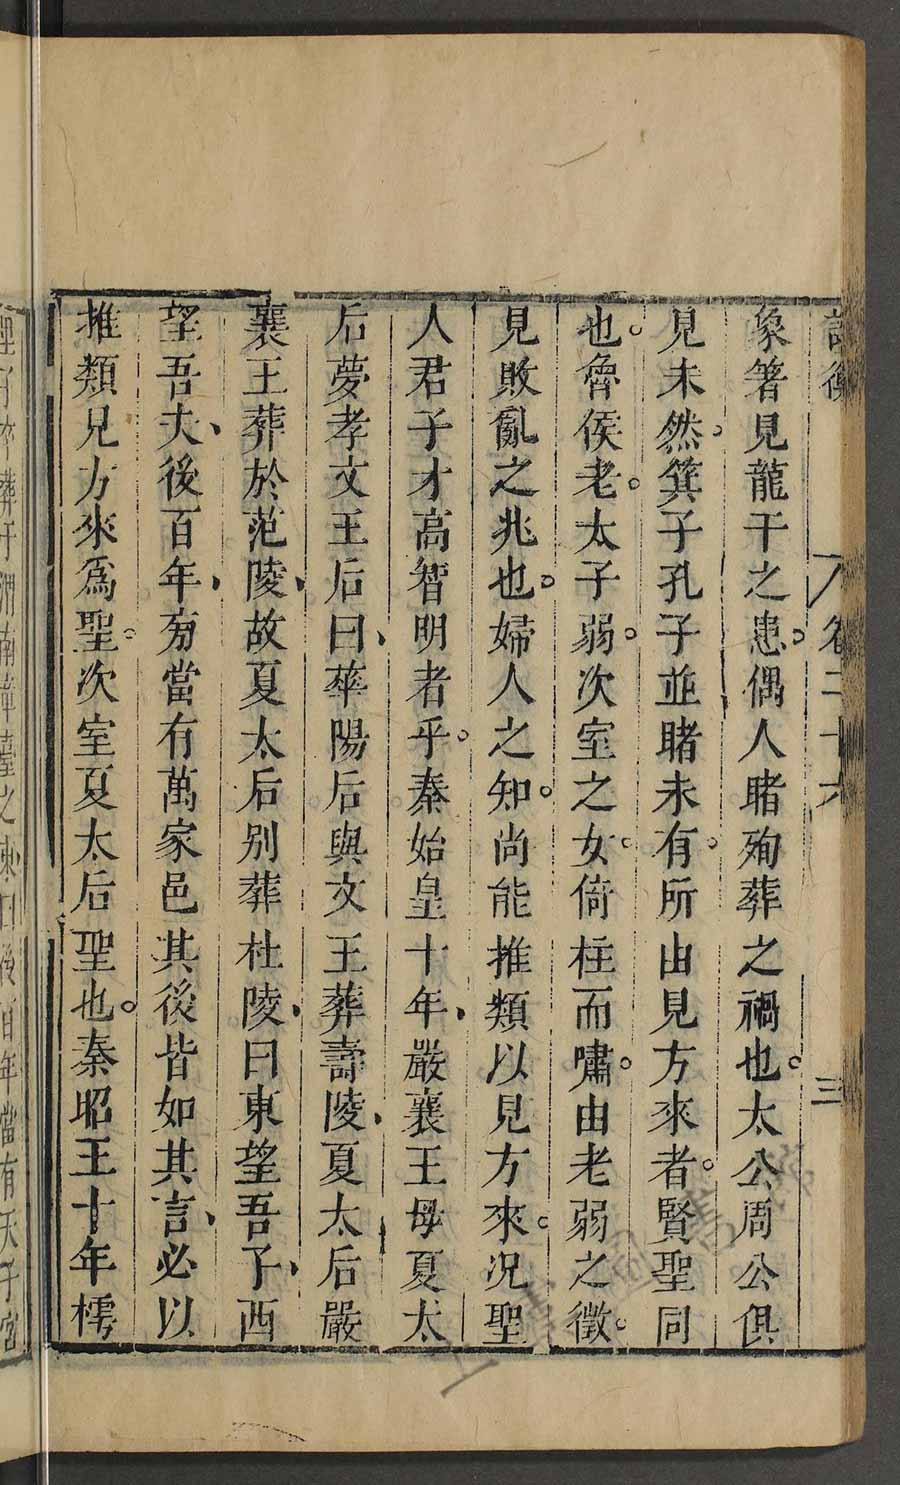 論衡 卷二十六 三
象箸見龍干之患偶人睹殉葬之禍也太公周公俱
見未然箕子孔子並睹未有所由見方來者賢聖同
也魯侯老太子弱次室之女倚柱而嘯由老弱之徵
見敗亂之兆也婦人之知尚能推類以見方來况聖
人君子才高智明者乎秦始皇十年嚴襄王母夏太
后夢孝文王后曰華陽后與文王葬壽陵夏太后嚴
襄王葬於范陵故夏太后别葬杜陵曰東望吾子西
望吾夫後百年旁當有萬家邑其後皆如其言必以
推類見方來爲聖次室夏太后聖也秦昭王十年樗
里子卒葬于渭南章臺之東曰後百年當有天子宮